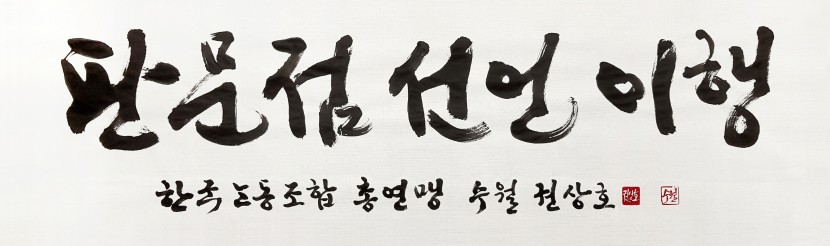 판문점 선언 이행
한국노동조합 총연맹 수월 권상호